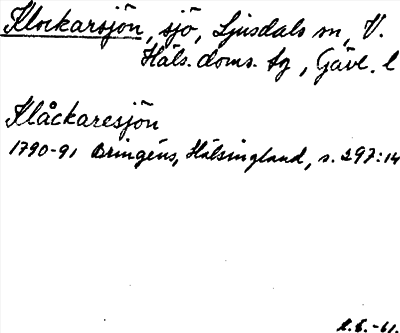 Klockarsjön, sjö, Ljusdals sn, V.
Häls. doms. tg, Gävl. l
Klåckaresjön
1790-91 Bringéus, Hälsingland, s. 297:14
R.E.-61.